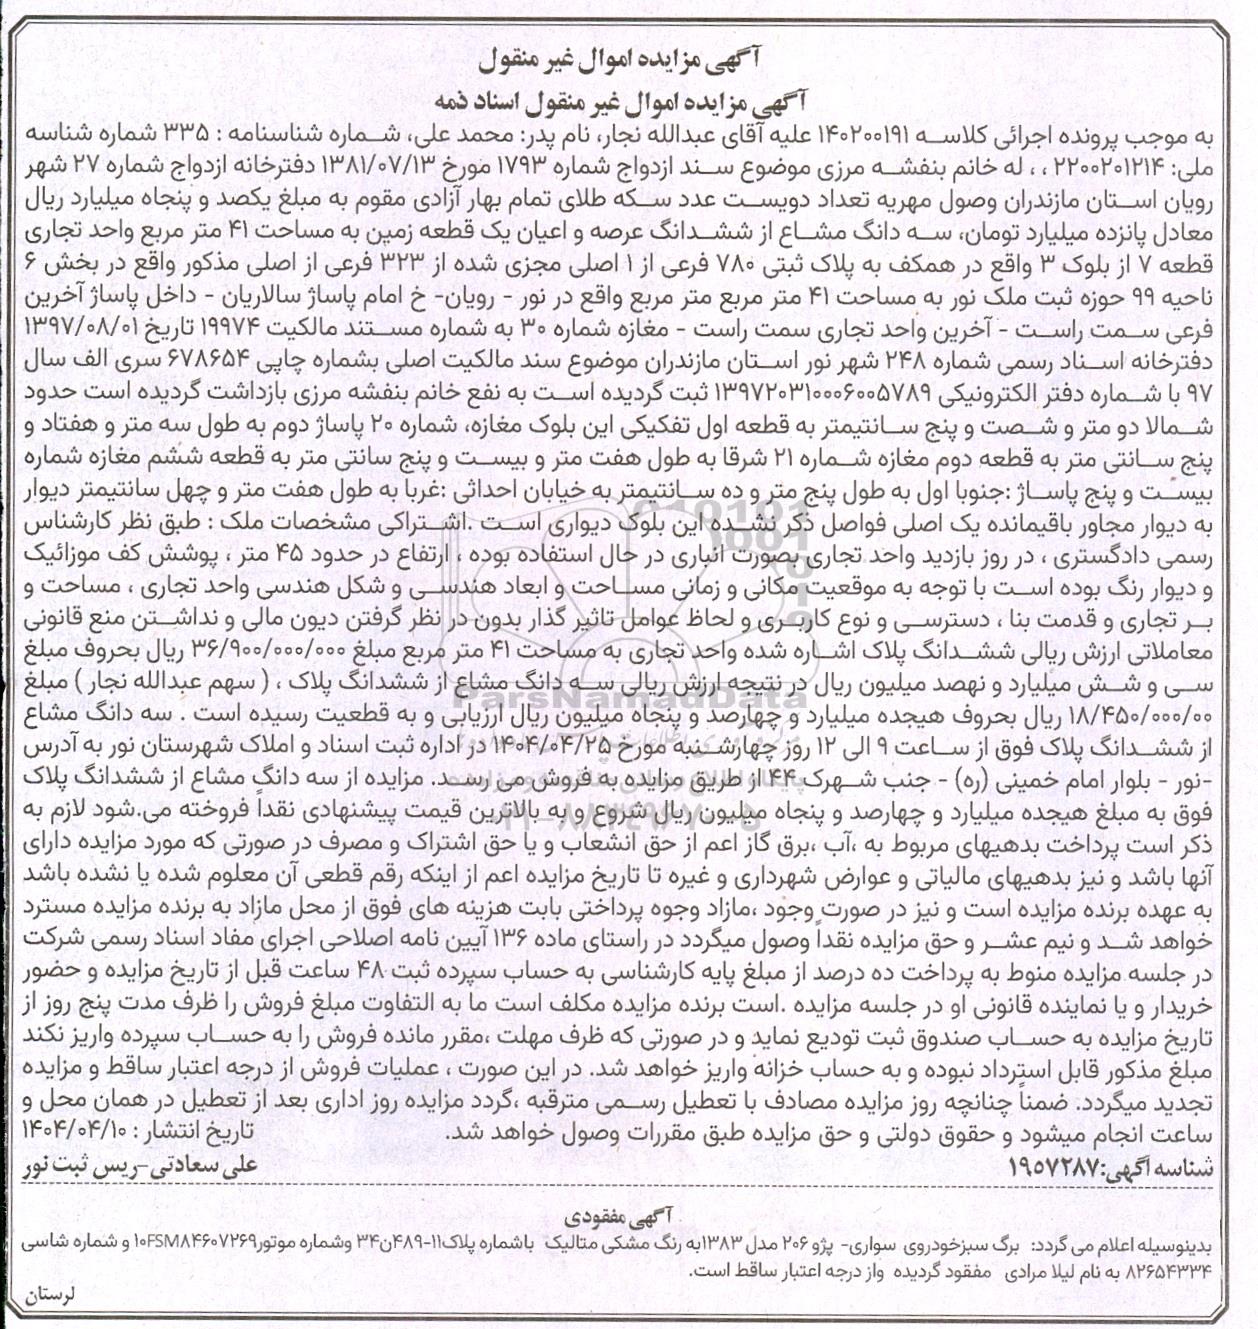 آگهی مزایده اموال غیر منقول
آگهی مزایده اموال غیر منقول اسناد ذمه
به موجب پرونده اجرائی کلاسه ۱۴۰۲۰۰۱۹۱ علیه آقای عبدالله نجار، نام پدر: محمد علی، شماره شناسنامه : ۳۳۵ شماره شناسه
ملی: ۲۲۰۰۲۰۱۲۱۴ ، ، له خانم بنفشه مرزی موضوع سند ازدواج شماره ۱۷۹۳ مورخ ۱۳۸۱/۰۷/۱۳ دفترخانه ازدواج شماره ۲۷ شهر
رویان استان مازندران وصول مهریه تعداد دویست عدد سکه طلای تمام بهار آزادی مقوم به مبلغ یکصد و پنجاه میلیارد ریال
معادل پانزده میلیارد تومان، سه دانگ مشاع از ششدانگ عرصه و اعیان یک قطعه زمین به مساحت ۴۱ متر مربع واحد تجاری
قطعه ۷ از بلوک ۳ واقع در همکف به پلاک ثبتی ۷۸۰ فرعی از ۱ اصلی مجزی شده از ۳۲۳ فرعی از اصلی مذکور واقع در بخش ۶
ناحیه ۹۹ حوزه ثبت ملک نور به مساحت ۴۱ متر مربع متر مربع واقع در نور - رویان- خ امام پاساژ سالاریان - داخل پاساژ آخرین
فرعی سمت راست - آخرین واحد تجاری سمت راست - مغازه شماره ۳۰ به شماره مستند مالکیت ۱۹۹۷۴ تاریخ ۱۳۹۷/۰۸/۰۱
دفترخانه اسناد رسمی شماره ۲۴۸ شهر نور استان مازندران موضوع سند مالکیت اصلی بشماره چاپی ۶۷۸۶۵۴ سری الف سال
۹۷ با شماره دفتر الکترونیکی ۱۳۹۷۲۰۳۱۰۰۰۶۰۰۵۷۸۹ ثبت گردیده است به نفع خانم بنفشه مرزی بازداشت گردیده است حدود
شمالا دو متر و شصت و پنج سانتیمتر به قطعه اول تفکیکی این بلوک مغازه، شماره ۲۰ پاساژ دوم به طول سه متر و هفتاد و
پنج سانتی متر به قطعه دوم مغازه شماره ۲۱ شرقا به طول هفت متر و بیست و پنج سانتی متر به قطعه ششم مغازه شماره
بیست و پنج پاساژ :جنوبا اول به طول پنج متر و ده سانتیمتر به خیابان احداثی :غربا به طول هفت متر و چهل سانتیمتر دیوار
به دیوار مجاور باقیمانده یک اصلی فواصل ذکر نشده این بلوک دیواری است .اشتراکی مشخصات ملک : طبق نظر کارشناس
رسمی دادگستری ، در روز بازدید واحد تجاری بصورت انباری در حال استفاده بوده ، ارتفاع در حدود ۴۵ متر ، پوشش کف موزائیک
و دیوار رنگ بوده است با توجه به موقعیت مکانی و زمانی مساحت و ابعاد هندسی و شکل هندسی واحد تجاری ، مساحت و
بر تجاری و قدمت بنا ، دسترسی و نوع کاربری و لحاظ عوامل تاثیر گذار بدون در نظر گرفتن دیون مالی و نداشتن منع قانونی
معاملاتی ارزش ریالی ششدانگ پلاک اشاره شده واحد تجاری به مساحت ۴۱ متر مربع مبلغ ۳۶/۹۰۰/۰۰۰/۰۰۰ ریال بحروف مبلغ
سی و شش میلیارد و نهصد میلیون ریال در نتیجه ارزش ریالی سه دانگ مشاع از ششدانگ پلاک ، ( سهم عبدالله نجار ) مبلغ
۱۸/۴۵۰/۰۰۰/۰۰ ریال بحروف هیجده میلیارد و چهارصد و پنجاه میلیون ریال ارزیابی و به قطعیت رسیده است . سه دانگ مشاع
از ششدانگ پلاک فوق از ساعت ۹ الی ۱۲ روز چهارشنبه مورخ ۱۴۰۴/۰۴/۲۵ در اداره ثبت اسناد و املاک شهرستان نور به آدرس
-نور - بلوار امام خمینی (ره) - جنب شهرک ۴۴ از طریق مزایده به فروش می رسد. مزایده از سه دانگ مشاع از ششدانگ پلاک
فوق به مبلغ هیجده میلیارد و چهارصد و پنجاه میلیون ریال شروع و به بالاترین قیمت پیشنهادی نقداً فروخته می.شود لازم به
ذکر است پرداخت بدهیهای مربوط به ،آب ،برق گاز اعم از حق انشعاب و یا حق اشتراک و مصرف در صورتی که مورد مزایده دارای
آنها باشد و نیز بدهیهای مالیاتی و عوارض شهرداری و غیره تا تاریخ مزایده اعم از اینکه رقم قطعی آن معلوم شده یا نشده باشد
به عهده برنده مزایده است و نیز در صورت وجود ،مازاد وجوه پرداختی بابت هزینه های فوق از محل مازاد به برنده مزایده مسترد
خواهد شد و نیم عشر و حق مزایده نقداً وصول میگردد در راستای ماده ۱۳۶ آیین نامه اصلاحی اجرای مفاد اسناد رسمی شرکت
در جلسه مزایده منوط به پرداخت ده درصد از مبلغ پایه کارشناسی به حساب سپرده ثبت ۴۸ ساعت قبل از تاریخ مزایده و حضور
خریدار و یا نماینده قانونی او در جلسه مزایده .است برنده مزایده مکلف است ما به التفاوت مبلغ فروش را ظرف مدت پنج روز از
تاریخ مزایده به حساب صندوق ثبت تودیع نماید و در صورتی که ظرف مهلت ،مقرر مانده فروش را به حساب سپرده واریز نکند
مبلغ مذکور قابل استرداد نبوده و به حساب خزانه واریز خواهد شد. در این صورت ، عملیات فروش از درجه اعتبار ساقط و مزایده
تجدید میگردد. ضمناً چنانچه روز مزایده مصادف با تعطیل رسمی مترقبه ،گردد مزایده روز اداری بعد از تعطیل در همان محل و
ساعت انجام میشود و حقوق دولتی و حق مزایده طبق مقررات وصول خواهد شد. تاریخ انتشار : ۱۴۰۴/۰۴/۱۰
شناسه آگهی:۱۹۵۷۲۸۷ علی سعادتی-ریس ثبت نور
آگهی مفقودی
بدینوسیله اعلام می گردد: برگ سبزخودروی سواری- پژو ۲۰۶ مدل ۱۳۸۳به رنگ مشکی متالیک باشماره پلاک۱۱-۴۸۹ن۳۴ وشماره موتور۱۰FSM۸۴۶۰۷۲۶۹ و شماره شاسی
۸۲۶۵۴۳۳۴ به نام لیلا مرادی مفقود گردیده واز درجه اعتبار ساقط است.
لرستان
ParsNamadData